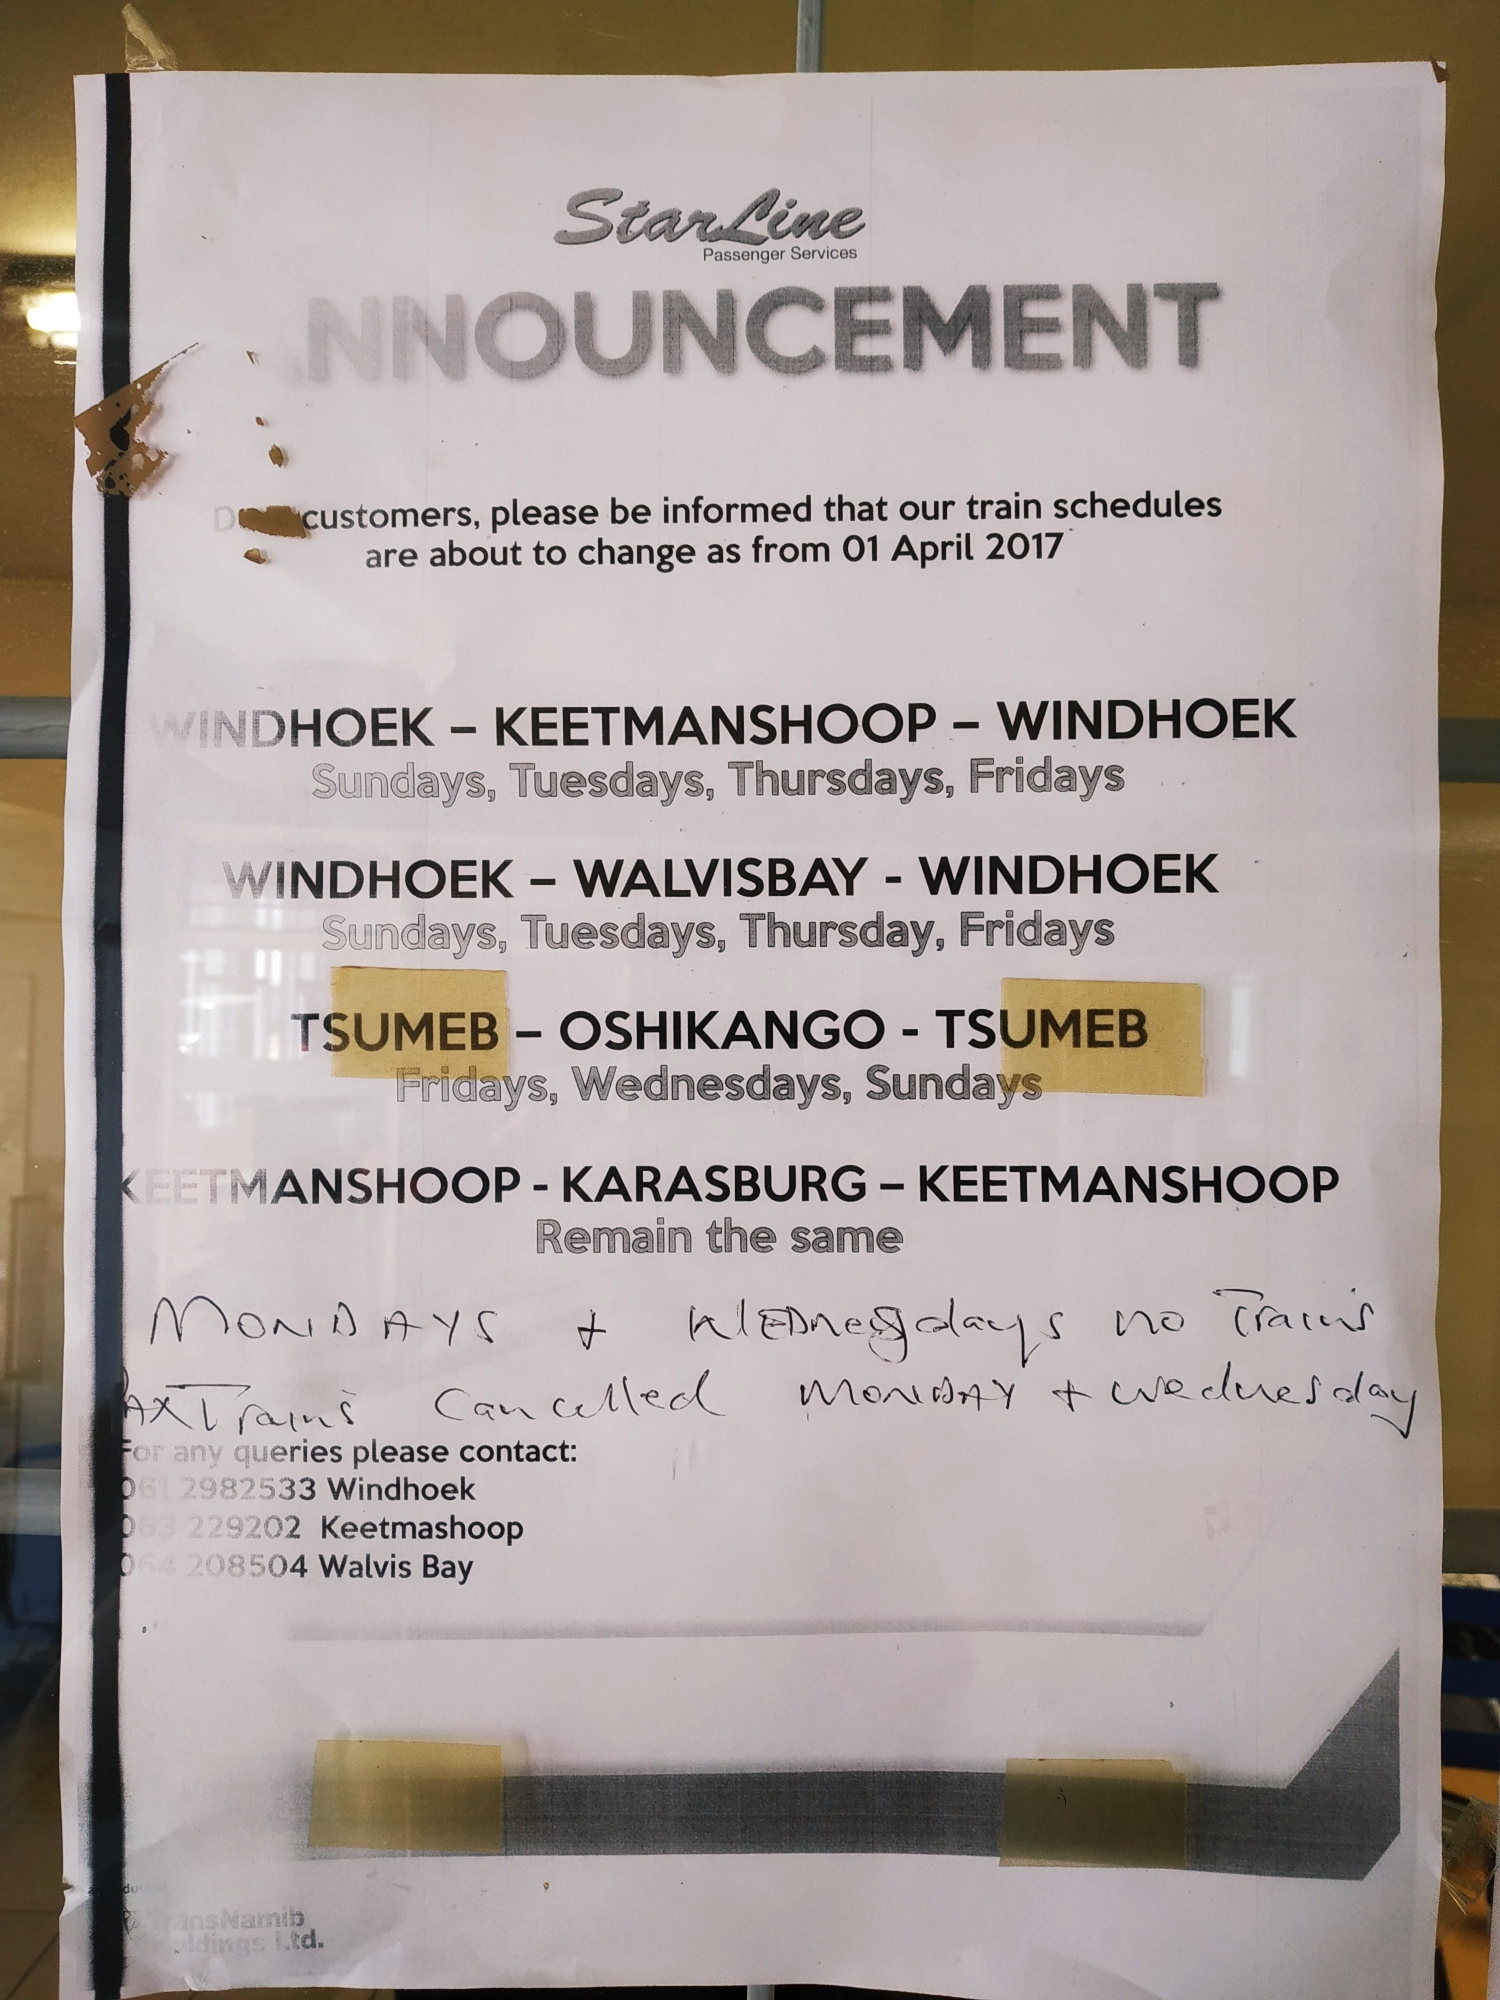 StarLine
Passenger Services
ANNOUNCEMENT
customers, please be informed that our train schedules
are about to change as from 01 April 2017
WINDHOEK – KEETMANSHOOP – WINDHOEK
Sundays, Tuesdays, Thursdays, Fridays
WINDHOEK – WALVISBAY - WINDHOEK
Sundays, Tuesdays, Thursday, Fridays
TSUMEB – OSHIKANGO - TSUMEB
Fridays, Wednesdays, Sundays
KEETMANSHOOP - KARASBURG – KEETMANSHOOP
Remain the same
MONDAYS + WEDNesdays no Trains
PAX Trains Cancelled MONDAY + wednesday
For any queries please contact:
061 2982533 Windhoek
063 229202 Keetmashoop
064 208504 Walvis Bay
TransNamib
Holdings Ltd.